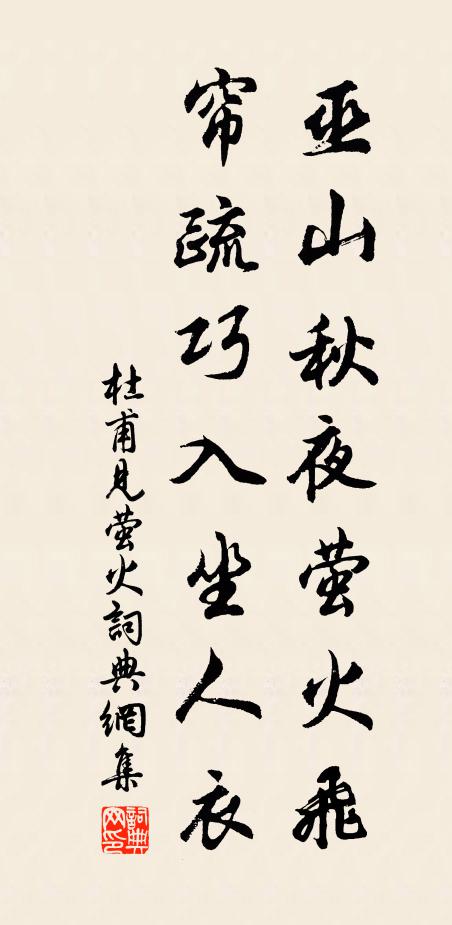 巫山秋夜萤火飛
帘疏巧入坐人衣
杜甫見萤火詞典網集
詞典网印